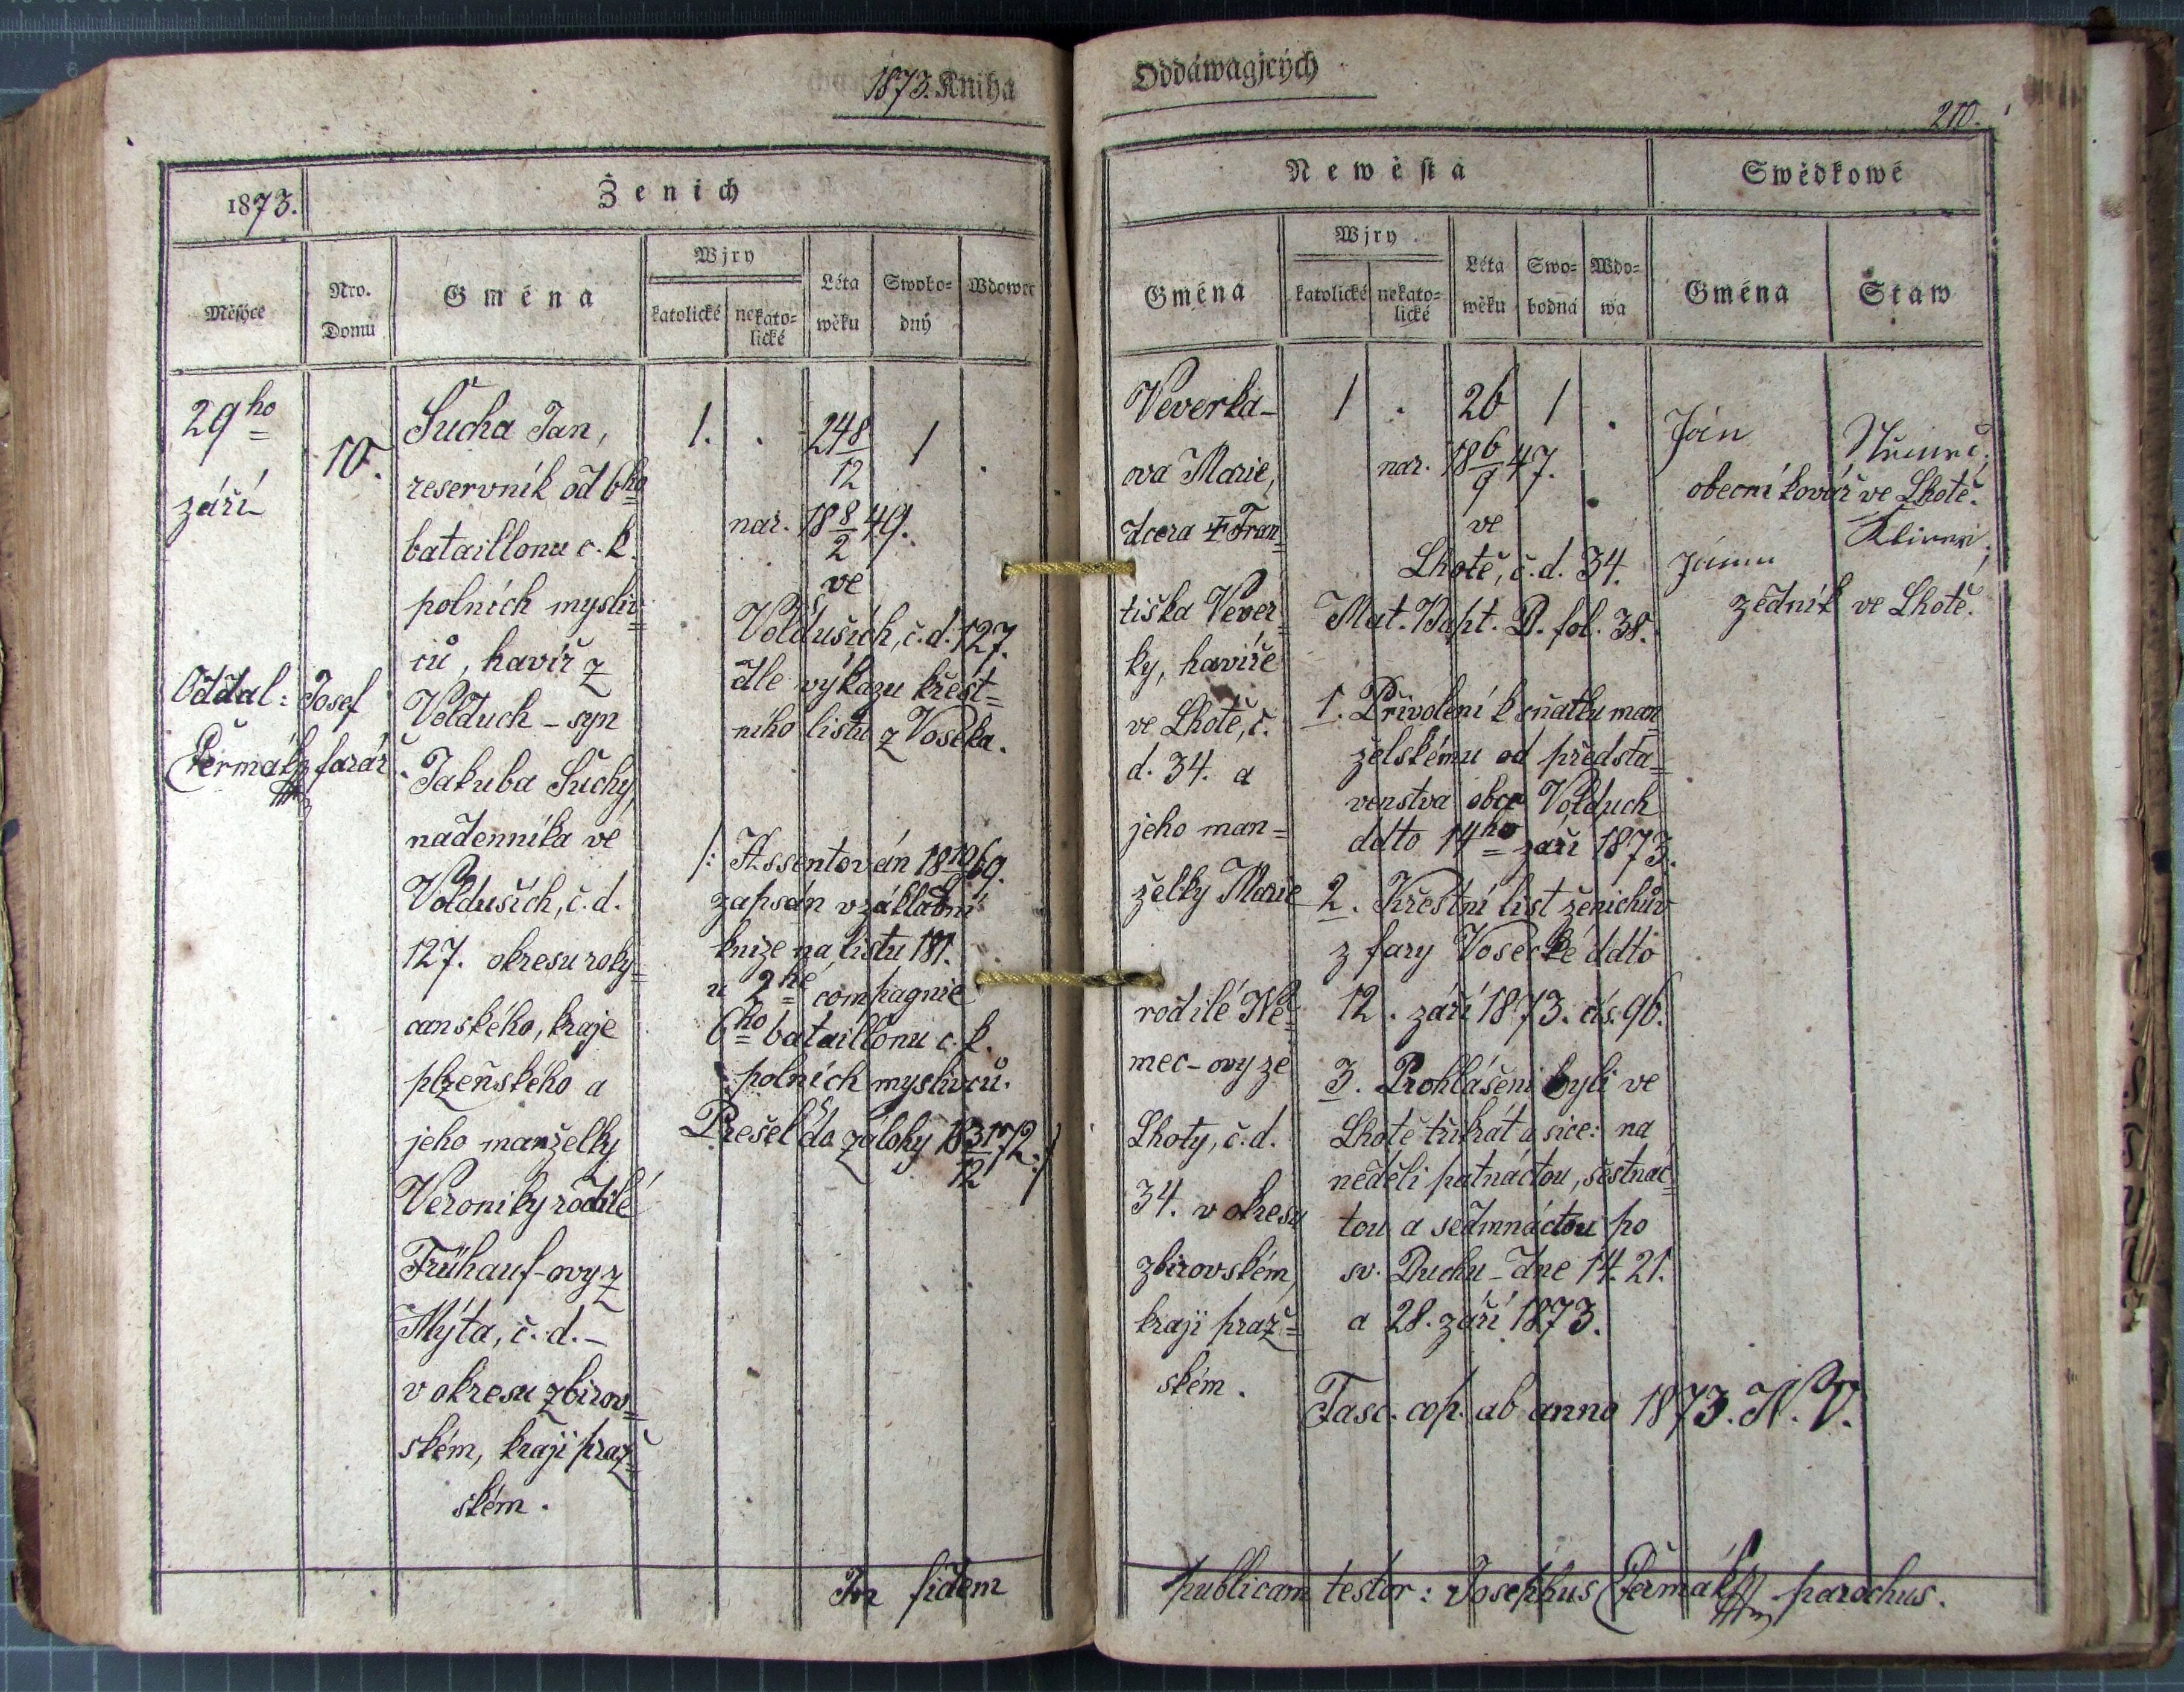 1873. Kniha
1873.
Ženich
Měsýce
Nro. Domu
Gména
Wjry
katolické
nekato=
lické
Léta
wěku
Swobo=
dný
Wdowec
29ho
září
10.
Sucha Jan,
reservník od 6ho
bataillonu c. k.
polních mysliv=
ců, havíř z
Volduch – syn
Jakuba Suchy,
nadenníka ve
Voldušich, č. d.
127. okresu roky=
canského, kraje
plzeňského a
jeho manželky
Veroniky rodilé
Frühauf-ovy z
Mýta, č. d. –
v okresu zbirov=
ském, kraji praž=
ském.
Oddal: Josef
Čermák, farář.
1. . 24 8/12 1 .
nar. 18 8/2 49.
ve
Voldušich, č. d. 127.
dle výkazu křest=
ního listu z Voseka.
/: Assentován 18 69.
zapsán v základní
knize na listu 181.
u 2hé compagnie
6ho bataillonu c. k.
polních myslivců.
Přešel do zálohy 18 31/12 72. :/
In fidem
Oddáwagjcých
210.
Newěsta
Swědkowé
Gména
Wjry
katolické
nekato=
lické
Léta
wěku
Swo=
bodná
Wdo=
wa
Gména
Staw
Veverka-
ova Marie,
dcera † Fran=
tiška Vever=
ky, havíře
ve Lhotě, č.
d. 34. a
jeho man=
želky Marie
rodilé Ně=
mec-ovy ze
Lhoty, č. d.
34. v okresu
zbirovském,
kraji praž=
ském.
1 . 26 1 .
nar. 18 6/9 47.
ve
Lhotě, č. d. 34.
Mat. Bapt. D. fol. 38.
1. Přivolení k sňatku man
želskému od předsta=
venstva obce Volduch
ddto 14ho září 1873.
2. Křestní list ženichův
z fary Vosecké ddto
12. září 1873. čís. 96.
3. Prohlášeni byli ve
Lhotě třikrát a sice: na
neděli patnáctou, šestnác=
tou a sedmnáctou po
sv. Duchu – dne 14. 21.
a 28. září 1873.
Fasc. cop. ab anno 1873. N. V.
Ján
obecní kovář ve Lhotě.
zedník ve Lhotě.
publicam testor: Josephus Čermák, parochus.